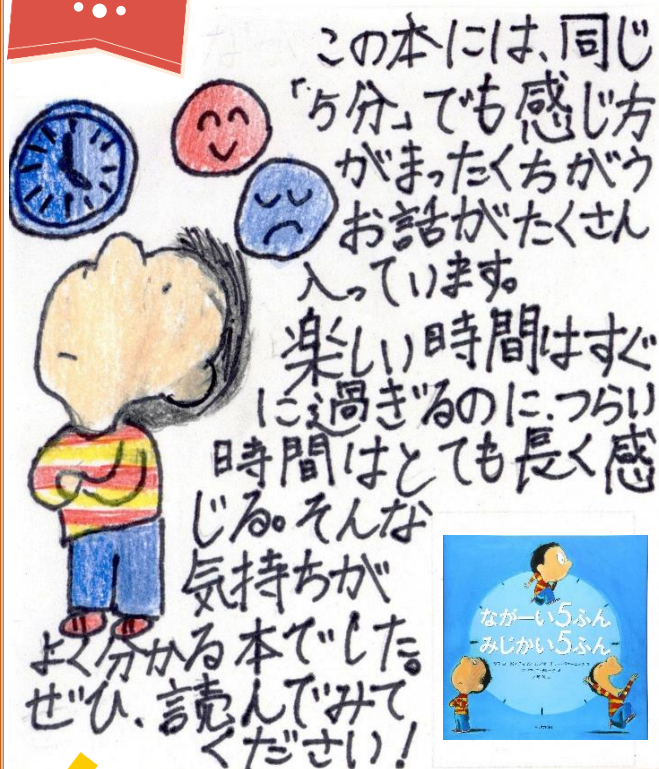 この本には、同じ
「5分」でも感じ方
がまったくちがう
お話がたくさん
入っています。
楽しい時間はすぐ
に過ぎるのに、つらい
時間はとても長く感
じる。そんな
気持ちが
よく分かる本でした。
ぜひ、読んでみて
ください!
ながーい5ふん
みじかい5ふん